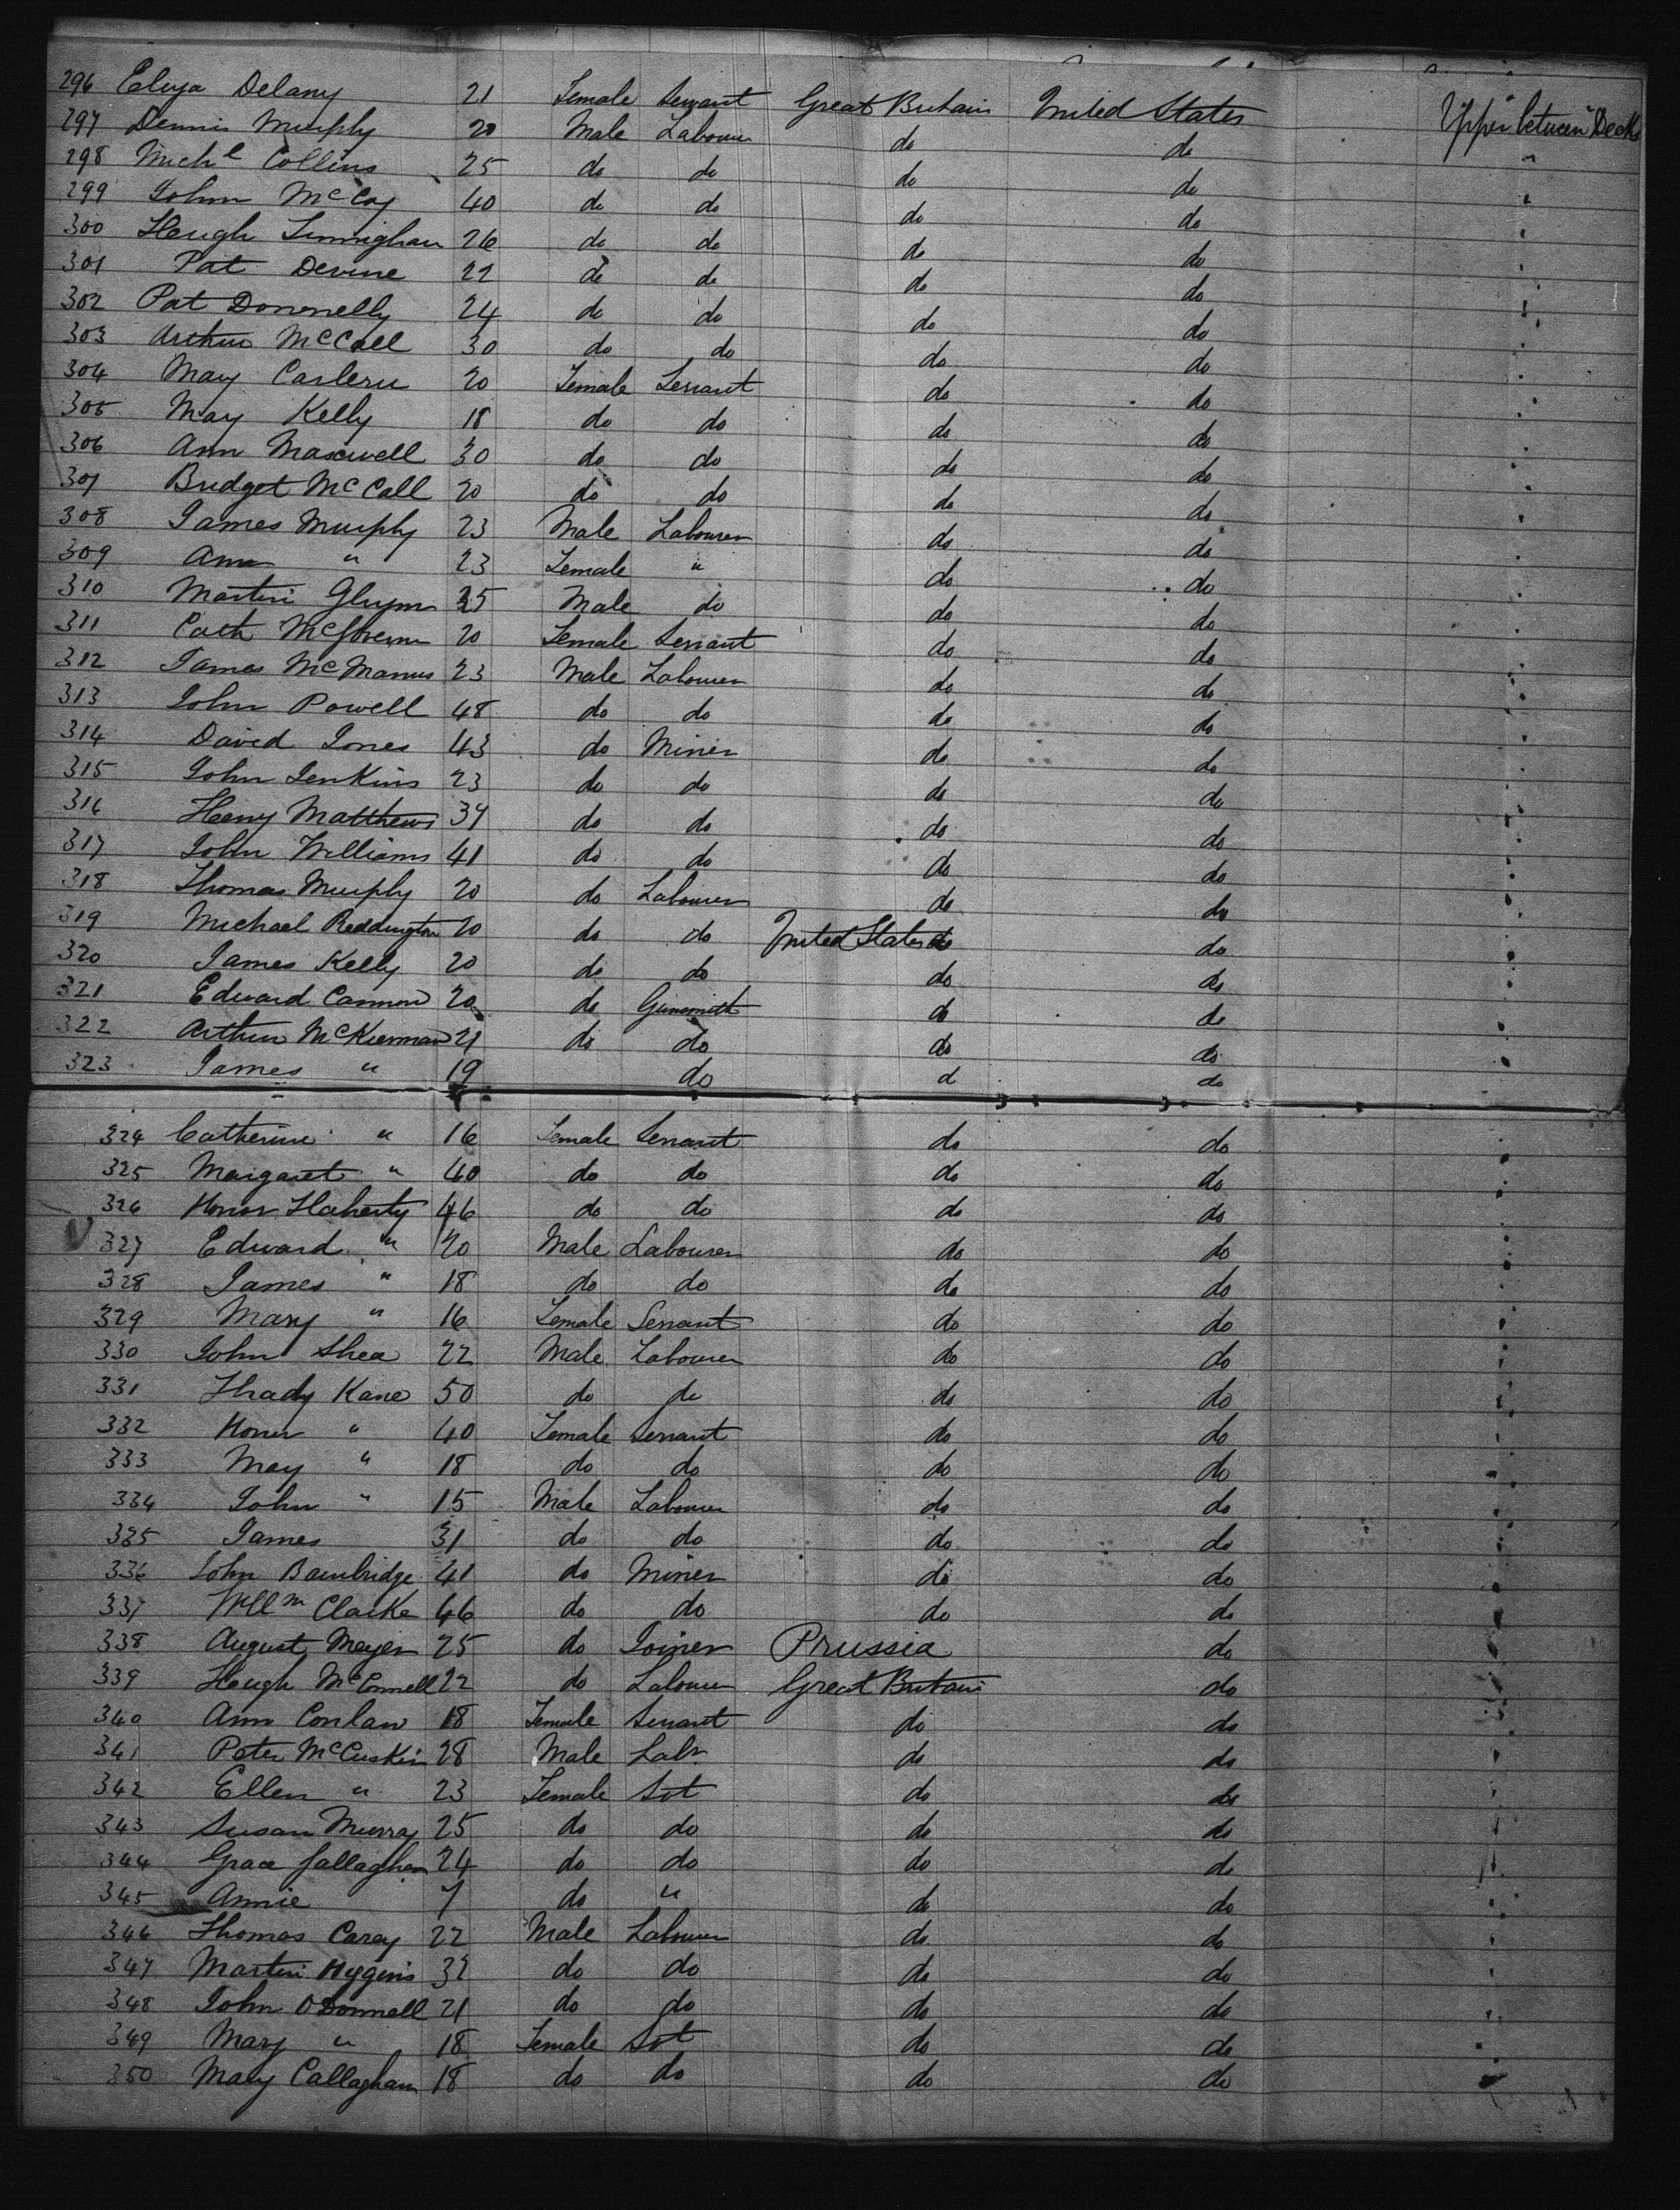 296 Eliza Delany 21 Female Servant Great Britain United States Upper between Decks
297 Dennis Murphy 20 Male Labourer do do "
298 Michl Collins 25 do do do do "
299 John McCoy 40 do do do do "
300 Hugh 26 do do do do "
301 Pat Devine 22 do do do do "
302 Pat Donnelly 24 do do do do "
303 Arthur McCall 30 do do do do "
304 Mary 20 Female Servant do do "
305 Mary Kelly 18 do do do do "
306 Ann Maxwell 30 do do do do "
307 Bridget McCall 20 do do do do "
308 James Murphy 23 Male Labourer do do "
309 Ann " 23 Female " do do "
310 Martin Glynn 25 Male do do do "
311 Cath McGovern 20 Female Servant do do "
312 James McManus 23 Male Labourer do do "
313 John Powell 48 do do do do "
314 David Jones 43 do Miner do do "
315 John Jenkins 23 do do do do "
316 Henry Matthews 37 do do do do "
317 John Williams 41 do do do do "
318 Thomas Murphy 20 do Labourer do do "
319 Michael Reddington 20 do do United States do "
320 James Kelly 20 do do do do "
321 Edward Cannon 20 do Gunsmith do do "
322 Arthur McKiernan 21 do do do do "
323 James " 19 do d do
324 Catherine " 16 Female Servant do do "
325 Margaret " 40 do do do do "
326 Honor Flaherty 46 do do do do "
327 Edward " 20 Male Labourer do do "
328 James " 18 do do do do "
329 Mary " 16 Female Servant do do "
330 John Shea 22 Male Labourer do do "
331 Thady Kane 50 do do do do "
332 Honor " 40 Female Servant do do "
333 May " 18 do do do do "
334 John " 15 Male Labourer do do "
335 James 31 do do do do "
336 John Bainbridge 41 do Miner do do "
337 Willm Clarke 46 do do do do "
338 August Meyer 25 do Joiner Prussia do "
339 Hugh McConnell 22 do Labourer Great Britain do "
340 Ann Conlan 18 Female Servant do do "
341 Peter McCuskin 28 Male Labr do do "
342 Ellen " 23 Female Svt do do "
343 Susan Murray 25 do do do do "
344 Grace Gallagher 24 do do do do "
345 Annie 7 do " do do "
346 Thomas Carey 22 Male Labourer do do "
347 Martin Higgins 32 do do do do "
348 John ODonnell 21 do do do do "
349 Mary " 18 Female Svt do do "
350 Mary Callaghan 18 do do do do "